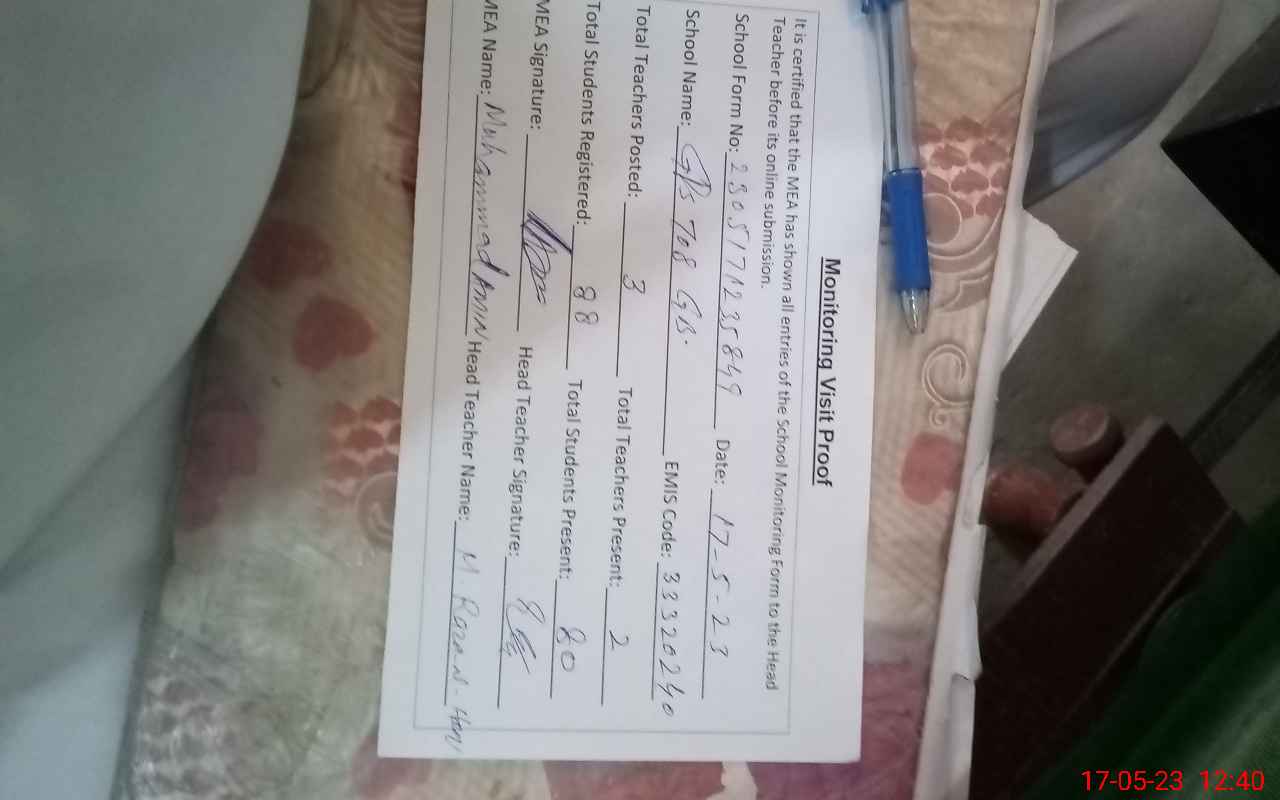 Monitoring Visit Proof
It is certified that the MEA has shown all entries of the School Monitoring Form to the Head
Teacher before its online submission.
School Form No: 2305171235849 Date: 17-5-23
School Name: GPS 708 GB. EMIS Code: 33320240
Total Teachers Posted: 3 Total Teachers Present: 2
Total Students Registered: 88 Total Students Present: 80
MEA Signature: Head Teacher Signature:
MEA Name: Muhammad AMIN Head Teacher Name: M.
17-05-23 12:40